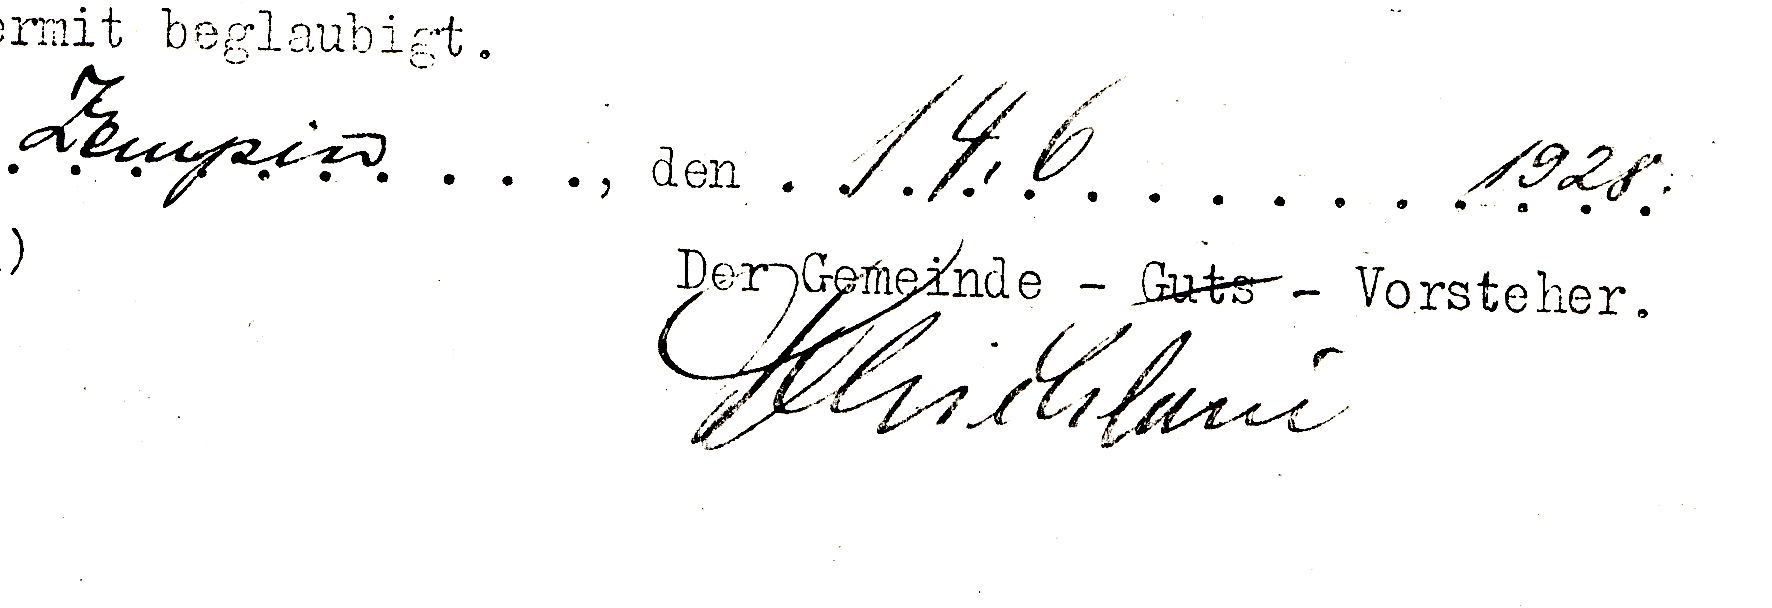 ermit beglaubigt.
Zempin . . . ., den . 14.6 . . . . . . . 1928.
)
Der Gemeinde - Guts - Vorsteher.